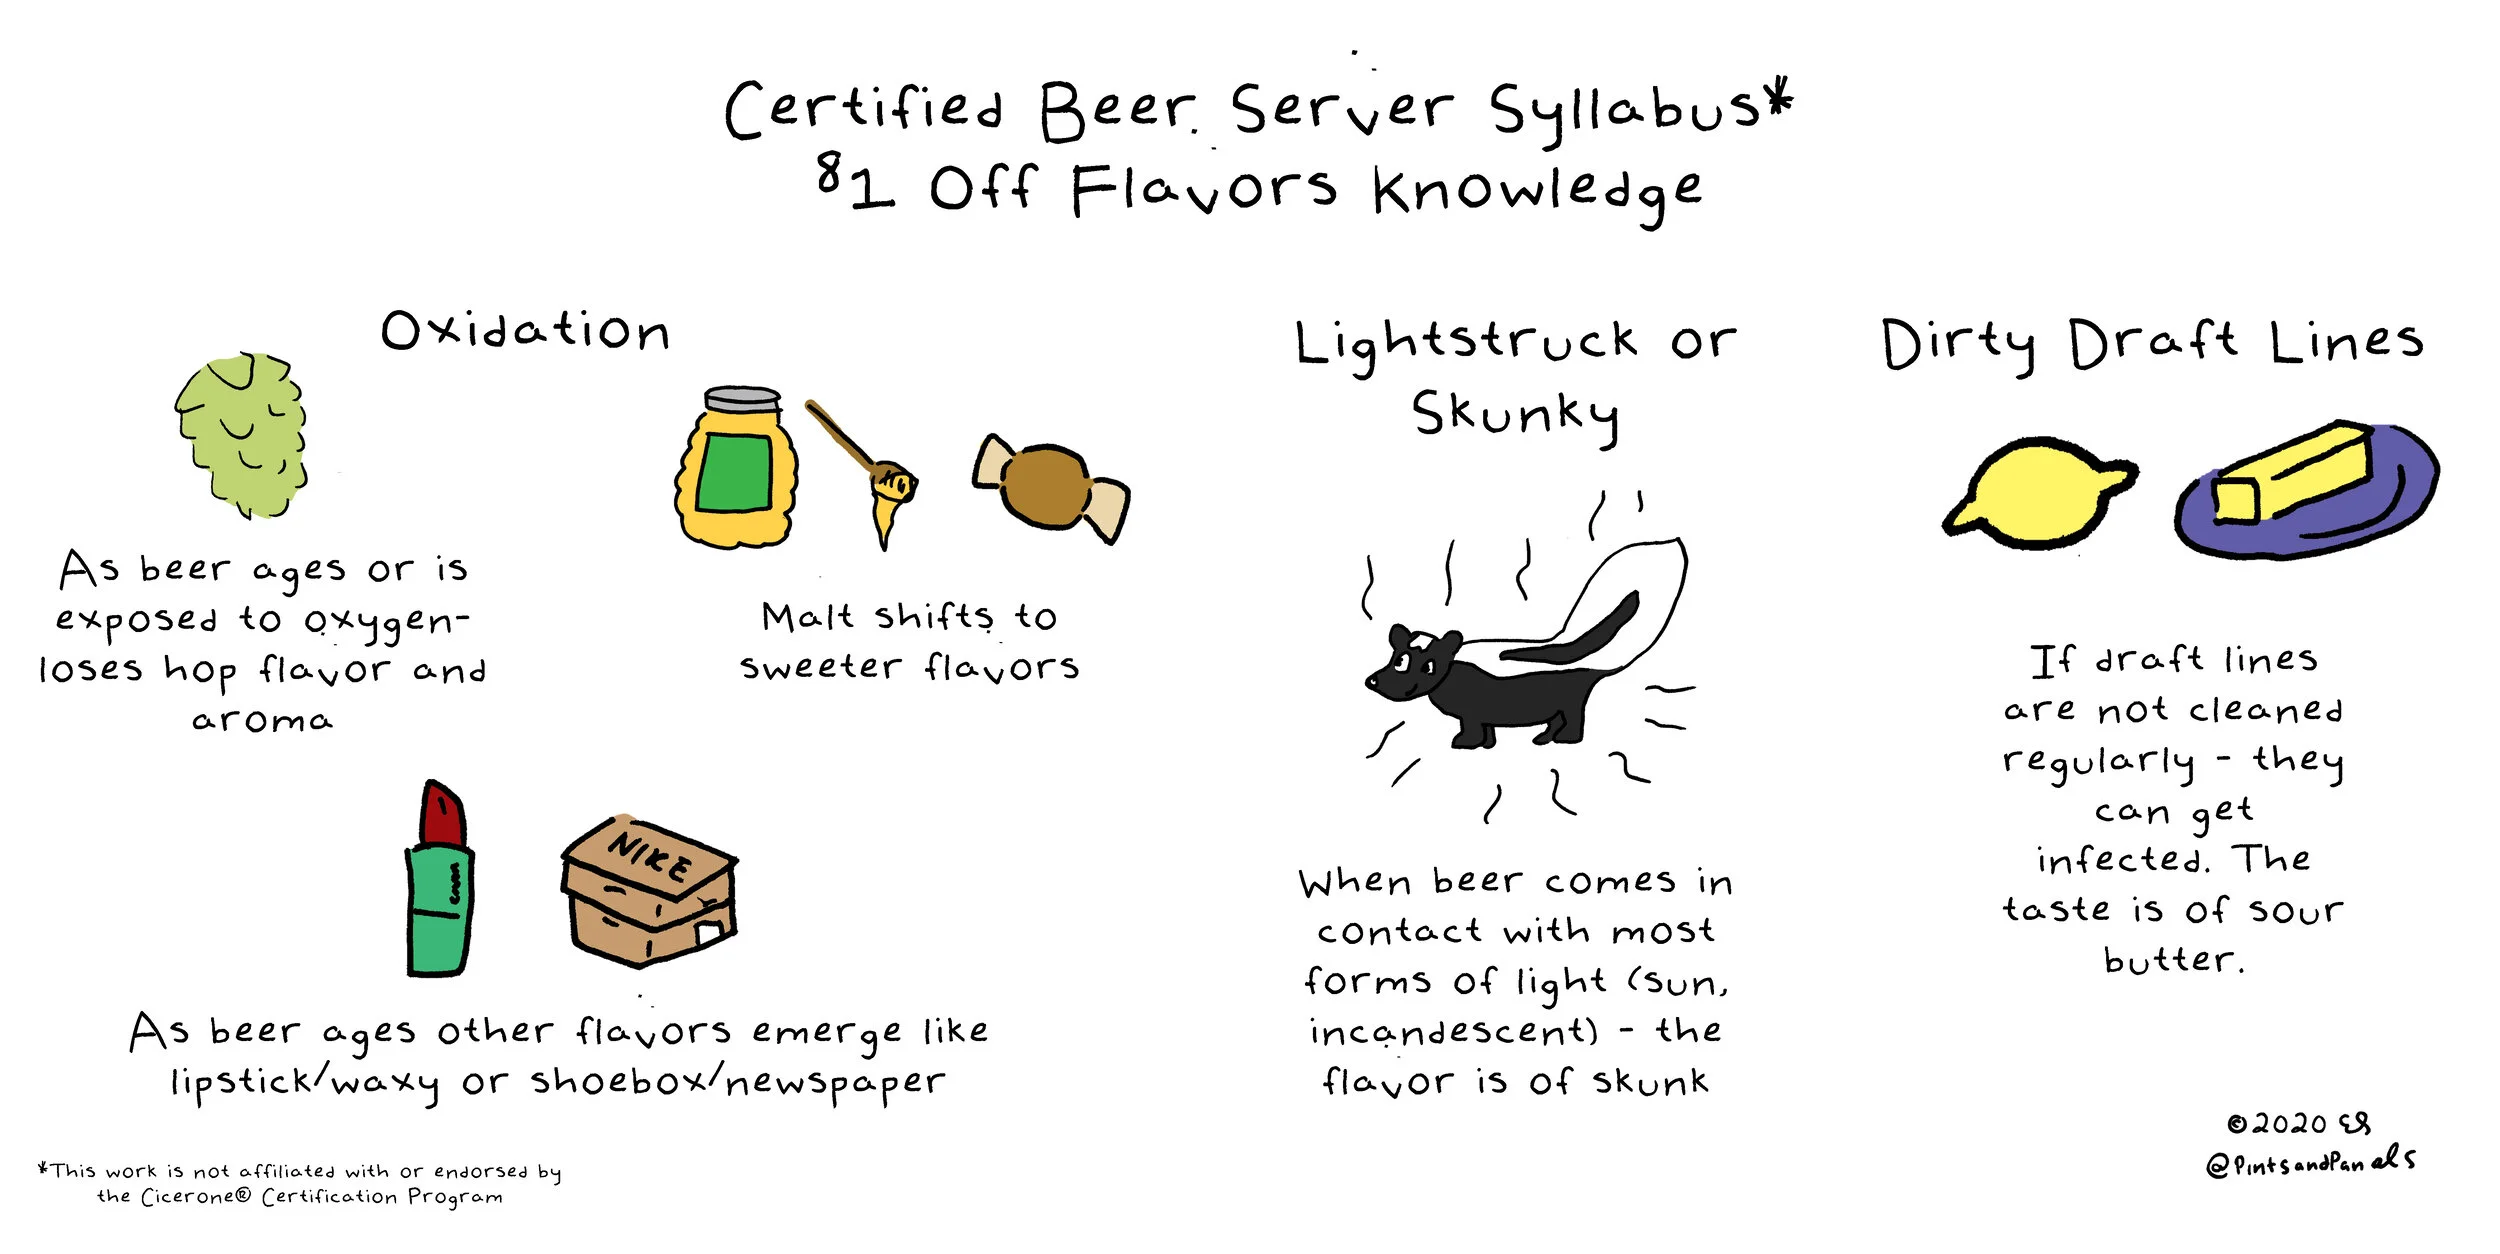 Certified Beer Server Syllabus*
81 Off Flavors Knowledge
Oxidation
As beer ages or is
exposed to oxygen-
loses hop flavor and
aroma
Malt shifts to
sweeter flavors
NIKE
As beer ages other flavors emerge like
lipstick/waxy or shoebox/newspaper
Lightstruck or
Skunky
When beer comes in
contact with most
forms of light (sun,
incandescent) - the
flavor is of skunk
Dirty Draft Lines
If draft lines
are not cleaned
regularly - they
can get
infected. The
taste is of sour
butter.
*This work is not affiliated with or endorsed by
the Cicerone® Certification Program
©2020 ES
@PintsandPanels